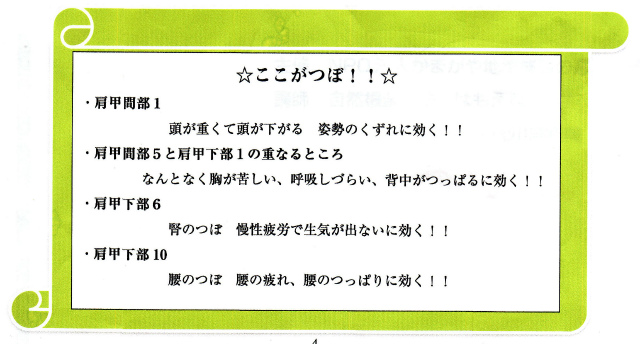 ☆ここがつぼ！！☆
・肩甲間部１
頭が重くて頭が下がる　姿勢のくずれに効く！！
・肩甲間部５と肩甲下部１の重なるところ
なんとなく胸が苦しい、呼吸しづらい、背中がつっぱるに効く！！
・肩甲下部６
腎のつぼ　慢性疲労で生気が出ないに効く！！
・肩甲下部 10
腰のつぼ　腰の疲れ、腰のつっぱりに効く！！